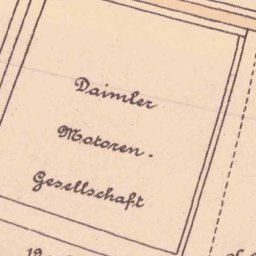 Daimler
Motoren.
Gesellschaft